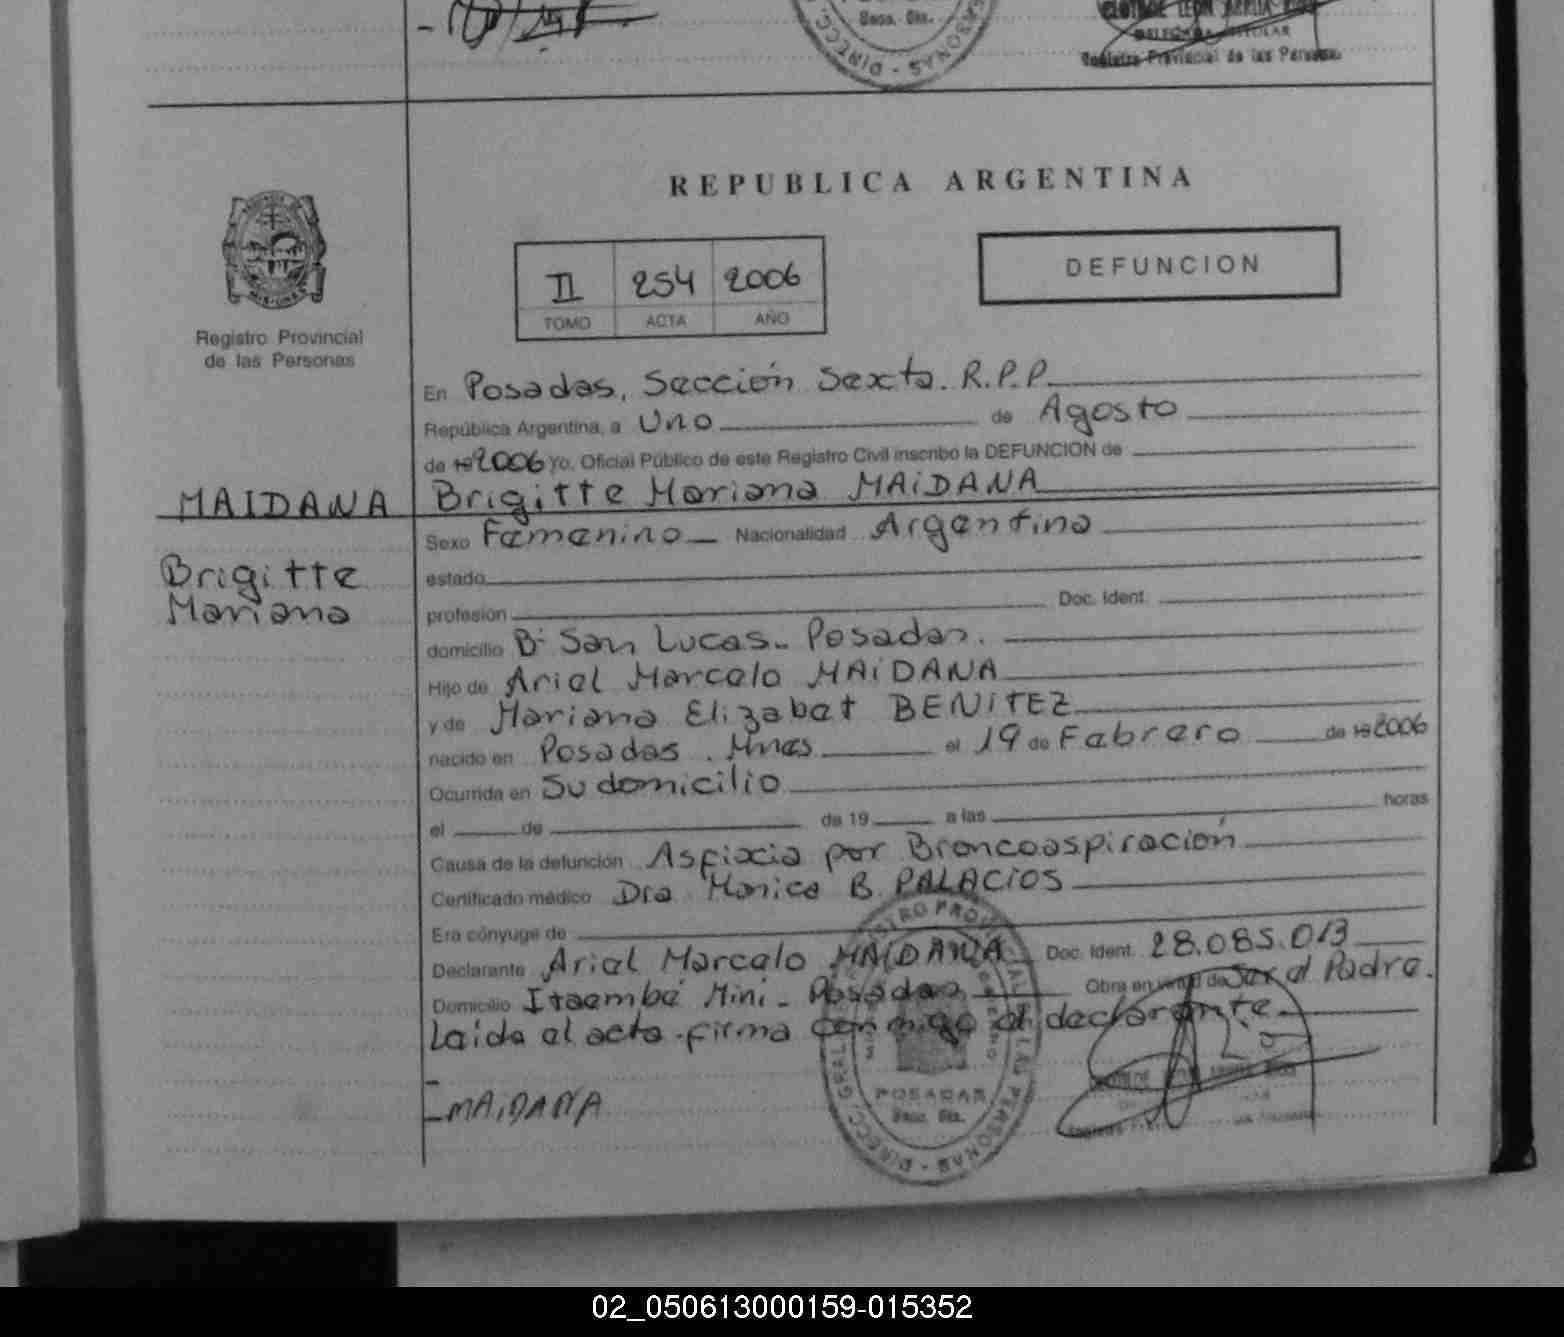 Saca. Gts.
DIRECC.
PERSONAS
DELEGADA TITULAR
Registro Provincial de las Personas
REPUBLICA ARGENTINA
II 254 2006
TOMO ACTA AÑO
DEFUNCION
Registro Provincial
de las Personas
En Posadas, Sección Sexta. R.P.P.
República Argentina, a Uno de Agosto
de 19 2006 Yo, Oficial Público de este Registro Civil inscribo la DEFUNCION de
MAIDANA Brigitte Mariana MAIDANA
Sexo Femenino Nacionalidad Argentina
Brigitte
Mariana
estado
profesión Doc. Ident.
domicilio Bº San Lucas - Posadas.
Hijo de Ariel Marcelo MAIDANA
y de Mariana Elizabet BENITEZ
nacido en Posadas. Mnes el 19 de Febrero de 19 2006
Ocurrida en Su domicilio
el de de 19 a las horas
Causa de la defunción Asfixia por Broncoaspiración
Certificado médico Dra. Monica B. PALACIOS
Era cónyuge de
Declarante Ariel Marcelo MAIDANA Doc. Ident. 28.085.013
Domicilio Itaembé Mini - Posadas Obra en virtud de Ser el Padre.
Leida el acta firma conmigo el declarante
- MAIDANA
POSADAS
02_050613000159-015352